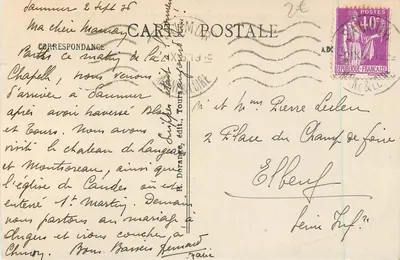 Saumur 2 Sept 36
Ma chère Maman
Partis ce matin de la
Chapelle, nous venons
d'arriver à Saumur
après avoir traversé Blois
et Tours. Nous avons
visité le chateau de Langeais
et Montsoreau, ainsi que
l'église de Candes où est
enterré St Martin. Demain
nous partons au mariage à
Angers et irons coucher à
Chinon. Bons Baisers Bernard
CARTE POSTALE
CORRESPONDANCE
2€
POSTES
40c
REPUBLIQUE FRANÇAISE
Mr et Mme Pierre Leleu
2 Place du Champ de foire
Elbeuf
Seine Infre